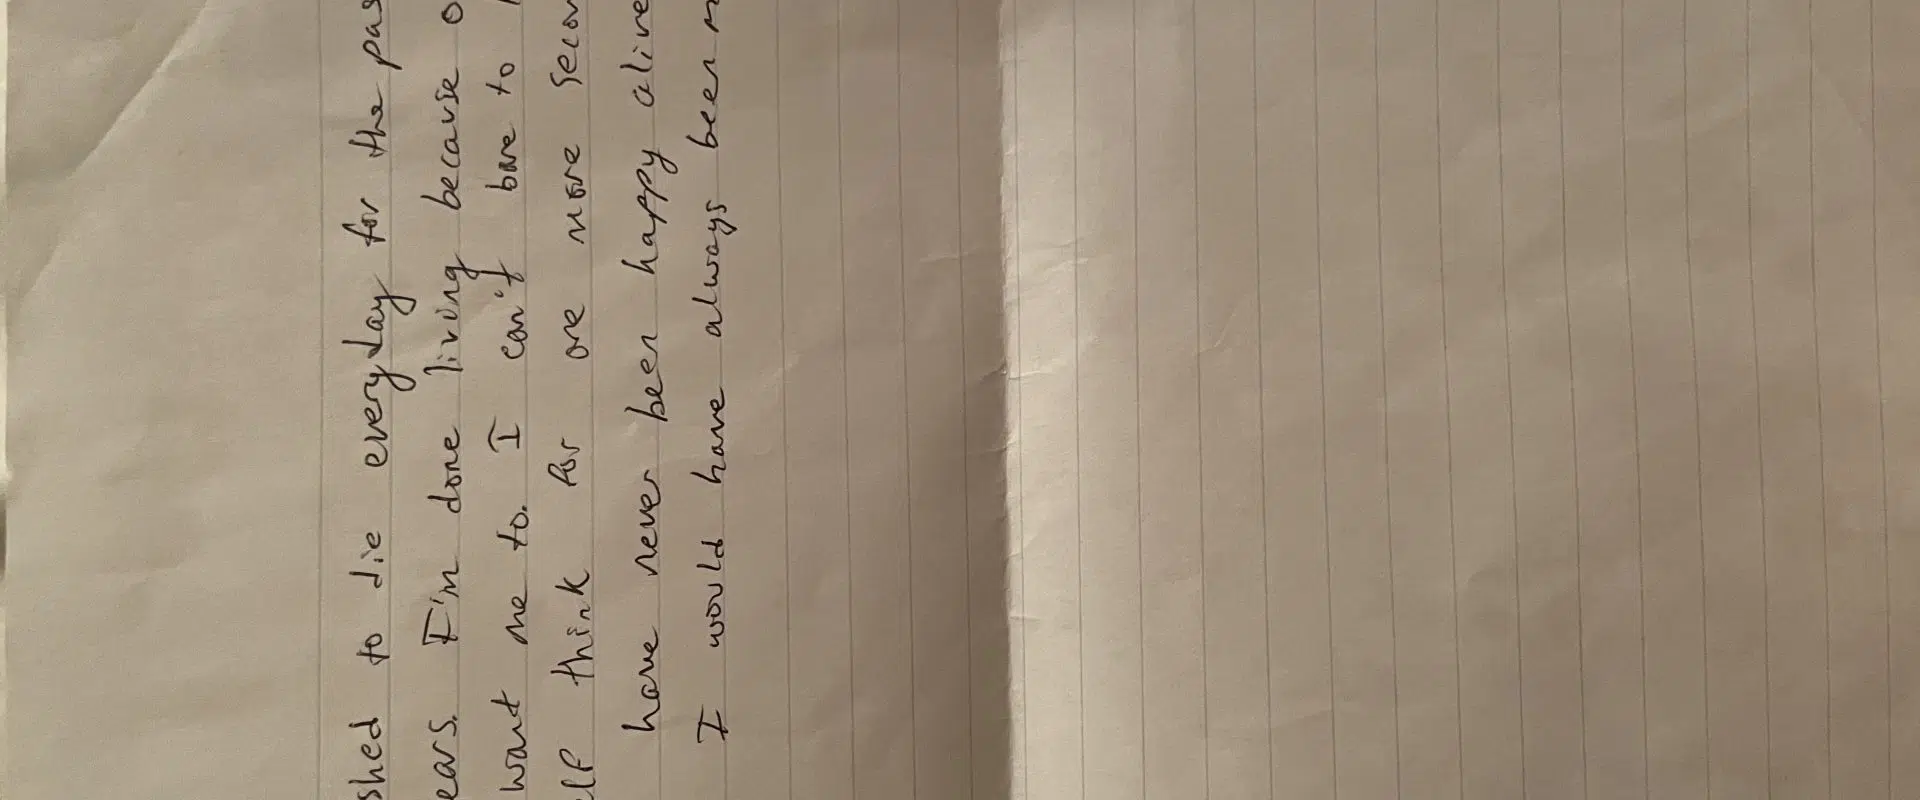 shed to die everyday for the pas
ears. I'm done living because o
want me to. I can't bare to
elf think for one more secon
have never been happy alive
I would have always been